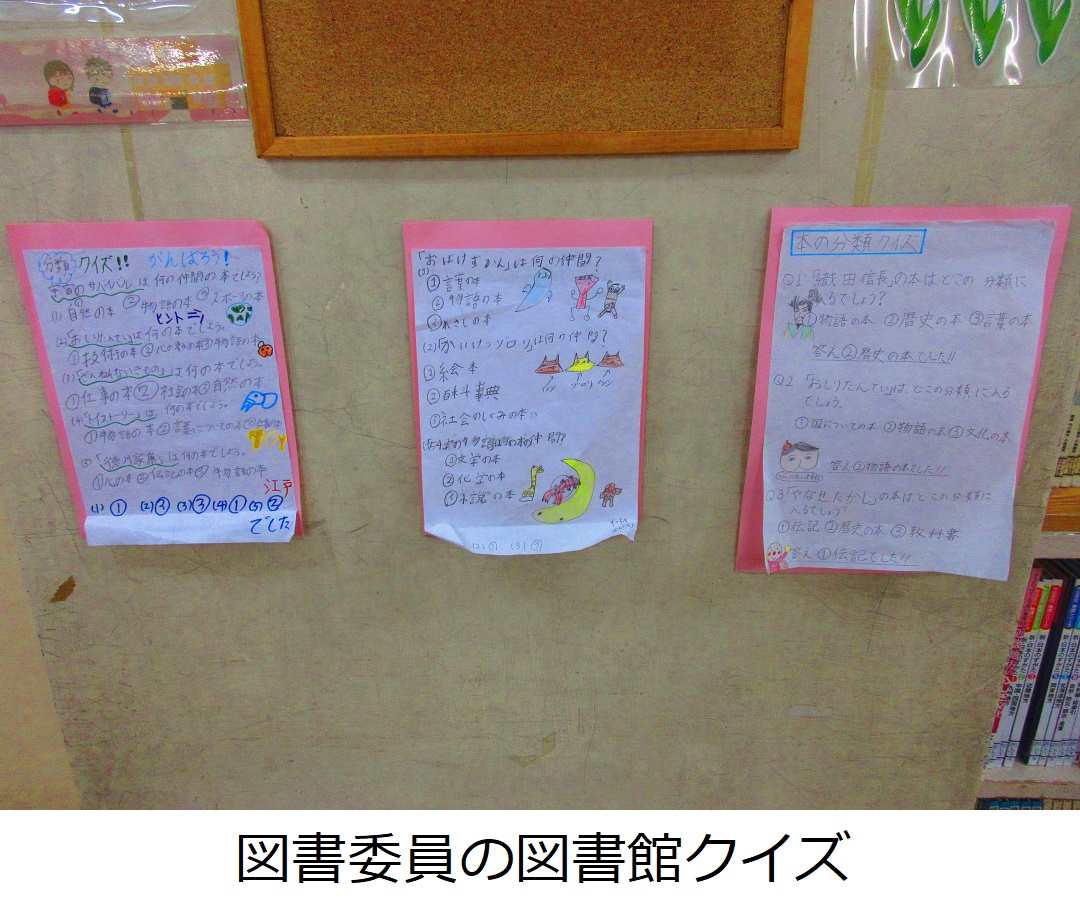 分類クイズ!! がんばろう!
宇宙のサバイバルは何の仲間の本でしょう?
(1)①自然の本 ②物語の本 ③スポーツの本
ヒント
(2)「おしりたんてい」は何の本でしょう。
①技術の本 ②心の動の本 ③物語の本
(3)「ざんねんないきもの」は何の本でしょう。
①仕事の本 ②社会の本 ③自然の本
(4)「トイストーリー」は何の本でしょう。
①物語の本 ②言葉についての本
(5)「徳川家康」は何の本でしょう。
②伝記の本 ③物語の本
江戸
(1)① (2)③ (3)③ (4)① (5)②
でした
「おばけずかん」は何の仲間?
(1)
①言葉の本
②物語の本
(2)「かいけつゾロリ」は何の仲間?
①絵本
②百科事典
③社会のしくみの本
①文学の本
②化学の本
本の分類クイズ
Q1「織田信長」の本はどこの分類に
入るでしょう?
①物語の本 ②歴史の本 ③言葉の本
答え②歴史の本でした!!
Q2「おしりたんてい」はどこの分類に入る
でしょう。
①国についての本 ②物語の本 ③文化の本
答え②物語の本でした!!
Q3「やなせたかし」の本は、どこの分類に
入るでしょう
①伝記 ②歴史の本 ③教科書
答え ①伝記でした!!
図書委員の図書館クイズ